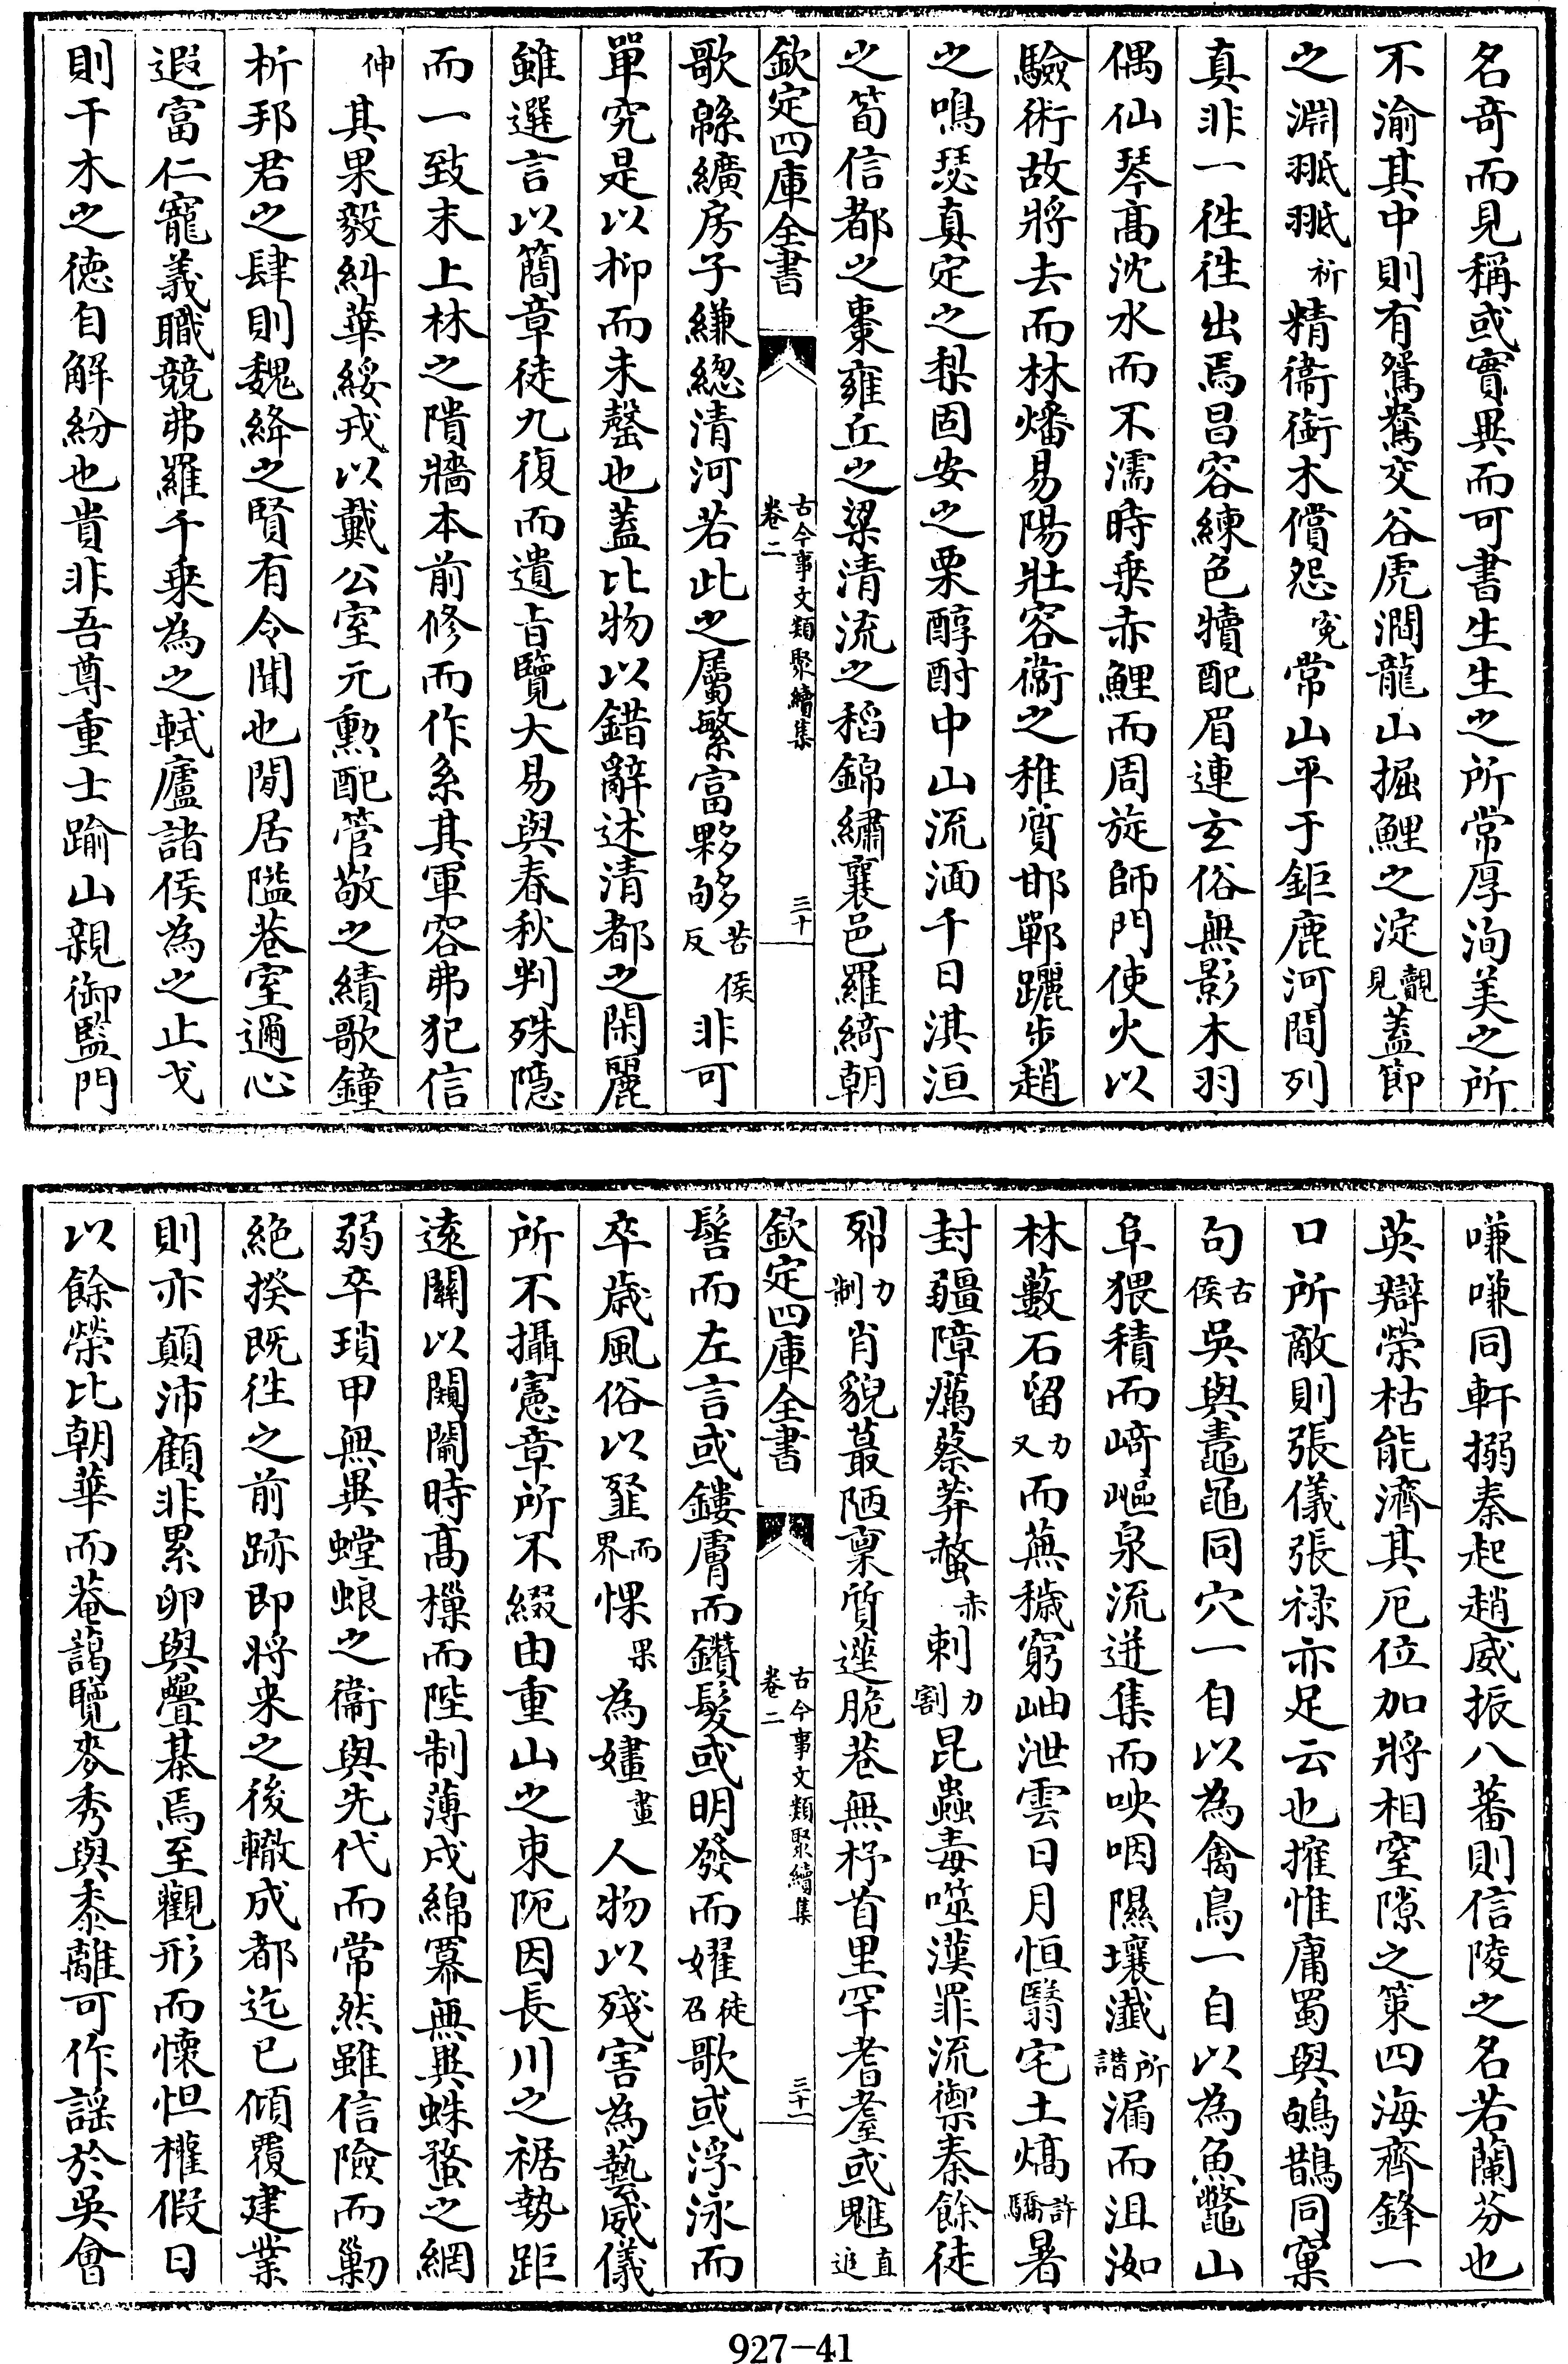 名竒而見稱或實異而可書生生之所常厚洵美之所
不渝其中則有鴛鴦交谷虎澗龍山掘鯉之淀覿見蓋節
之淵㲝㲝祈精衞銜木償怨寃常山平于鉅鹿河間列
真非一徃徃出焉昌容練色犢配眉連玄俗無影木羽
偶仙琴髙沈水而不濡時乗赤鯉而周旋師門使火以
驗術故將去而林燔易陽壯容衞之稚質邯鄲躧步趙
之鳴瑟真定之梨固安之栗醇酎中山流湎千日淇洹
之筍信都之棗雍丘之粱清流之稻錦繡襄邑羅綺朝
欽定四庫全書
古今事文類聚續集
卷二
三十
歌緜纊房子縑總清河若此之屬繁富夥够苦侯反非可
單究是以抑而未罄也蓋比物以錯辭述清都之閑麗
雖選言以簡章徒九復而遺㫖覽大易與春秋判殊隱
而一致末上林之隤牆本前修而作系其軍容弗犯信
伸其果毅糾華綏戎以戴公室元勲配管敬之績歌鐘
析邦君之肆則魏絳之賢有令聞也閒居隘巷室邇心
遐富仁寵義職競弗羅千乗為之軾廬諸侯為之止戈
則干木之徳自解紛也貴非吾尊重士踰山親御監門
嗛嗛同軒搦秦起趙威振八蕃則信陵之名若蘭芬也
英辯榮枯能濟其厄位加將相窒隙之䇿四海齊鋒一
口所敵則張儀張禄亦足云也搉惟庸蜀與鴝鵲同窠
句古侯吳與䵷黽同穴一自以為禽鳥一自以為魚鼈山
阜猥積而﨑嶇泉流迸集而咉咽隰壤瀸所譛漏而沮洳
林藪石留力又而蕪穢窮岫泄雲日月恒翳宅土熇許驕暑
封疆障癘蔡莽螫赤刺力割昆蟲毒噬漢罪流禦秦餘徒
𠛱力制肖貌蕞陋稟質遳脆巷無杼首里罕耆耋或魋直追
欽定四庫全書
古今事文類聚續集
卷二
三十一
髻而左言或鏤膚而鑽髮或明發而嬥徒召歌或浮泳而
卒歳風俗以韰而界惈果為嫿畫人物以殘害為藝威儀
所不攝憲章所不綴由重山之束阨因長川之裾勢距
逺關以闚𨵦時髙樔而陛制薄戍綿冪無異蛛蝥之網
弱卒瑣甲無異螳蜋之衞與先代而常然雖信險而勦
絶揆既徃之前跡即將来之後轍成都迄已傾覆建業
則亦顛沛顧非累卵與疊棊焉至觀形而懷怛權假日
以餘榮比朝華而菴藹覽麥秀與黍離可作謡於吳會
927-41